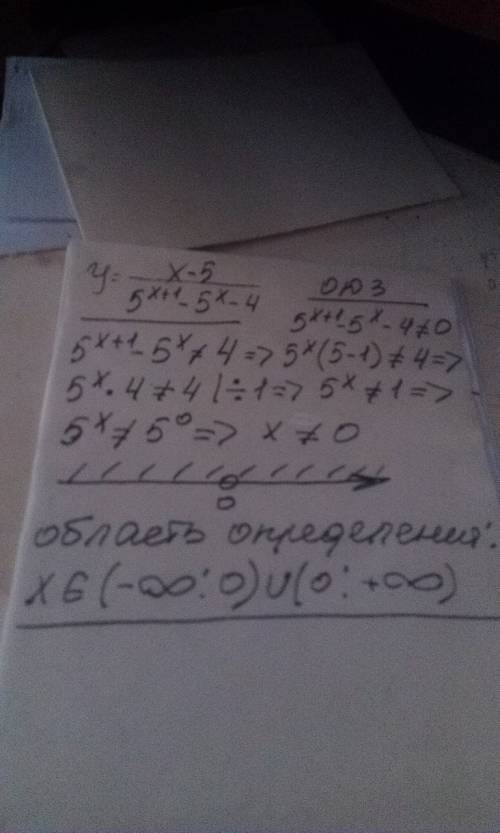 y = x-5 / 5^x+1 - 5^x - 4
ОДЗ
5^x+1 - 5^x - 4 ≠ 0
5^x+1 - 5^x ≠ 4 => 5^x(5-1) ≠ 4 =>
5^x · 4 ≠ 4 | ÷1 => 5^x ≠ 1 =>
5^x ≠ 5^0 => x ≠ 0
0
область определения:
x ∈ (-∞; 0) ∪ (0; +∞)